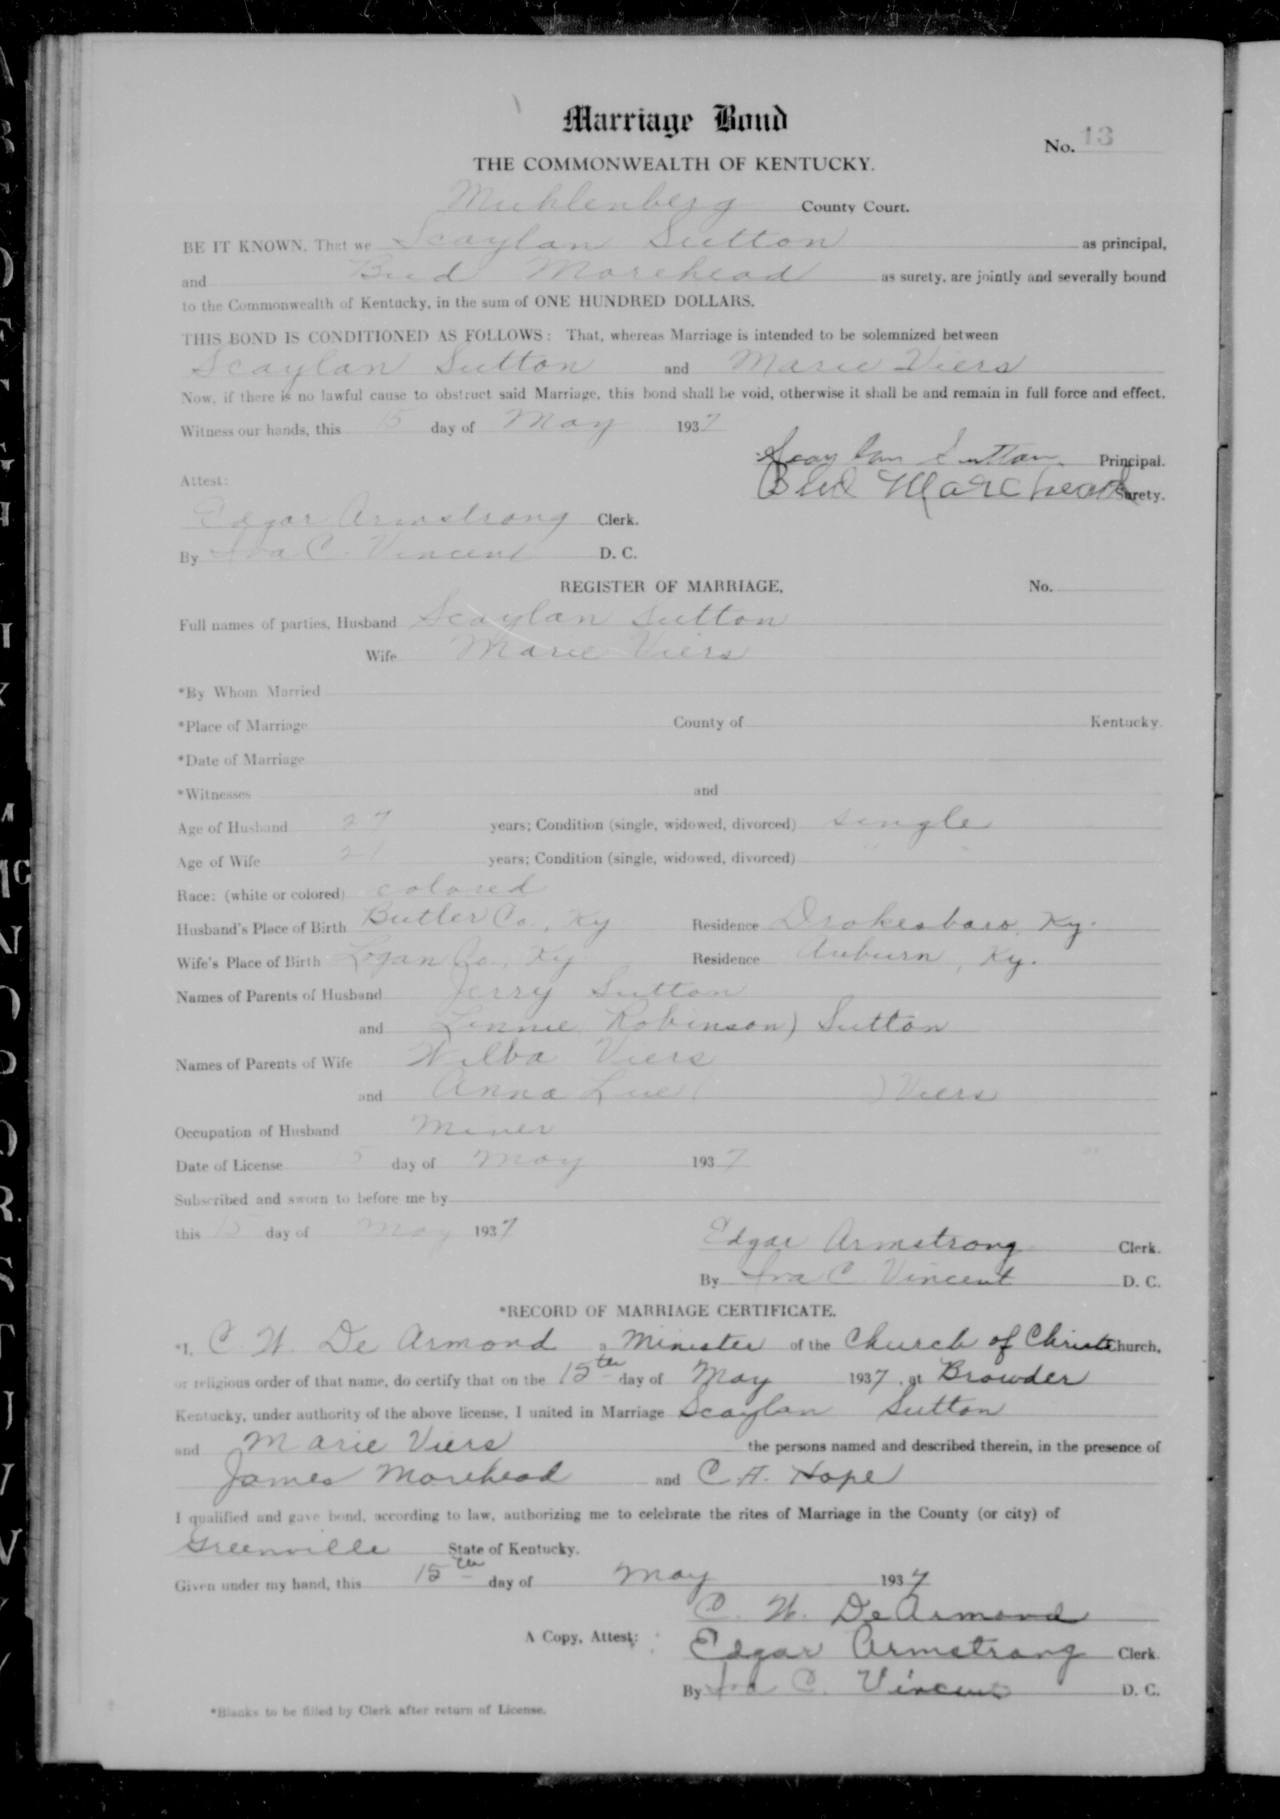 Marriage Bond
No. 13
THE COMMONWEALTH OF KENTUCKY.
Muhlenberg County Court.
BE IT KNOWN, That we Scaylan Sutton as principal,
and Bud Morehead as surety, are jointly and severally bound
to the Commonwealth of Kentucky, in the sum of ONE HUNDRED DOLLARS.
THIS BOND IS CONDITIONED AS FOLLOWS: That, whereas Marriage is intended to be solemnized between
Scaylan Sutton and Marie Viers
Now, if there is no lawful cause to obstruct said Marriage, this bond shall be void, otherwise it shall be and remain in full force and effect.
Witness our hands, this 15 day of May 1937
Scaylan Sutton Principal.
Attest: Bud Morehead Surety.
Edgar Armstrong Clerk.
By Iva C. Vincent D. C.
REGISTER OF MARRIAGE, No.
Full names of parties, Husband Scaylan Sutton
Wife Marie Viers
*By Whom Married
*Place of Marriage County of Kentucky
*Date of Marriage
*Witnesses and
Age of Husband 27 years; Condition (single, widowed, divorced) single
Age of Wife 21 years; Condition (single, widowed, divorced) " "
Race: (white or colored) colored
Husband's Place of Birth Butler Co., Ky Residence Drakesboro, Ky.
Wife's Place of Birth Logan Co., Ky Residence Auburn, Ky.
Names of Parents of Husband Jerry Sutton
and Linnie Robinson) Sutton
Names of Parents of Wife Wilba Viers
and Anna Lue ( ) Viers
Occupation of Husband Miner
Date of License 15 day of May 1937
Subscribed and sworn to before me by
this 15 day of May 1937
Edgar Armstrong Clerk.
By Iva C. Vincent D. C.
*RECORD OF MARRIAGE CERTIFICATE.
*I, C. W. De Armond a Minister of the Church of Christ Church,
or religious order of that name, do certify that on the 15th day of May 1937, at Browder
Kentucky, under authority of the above license, I united in Marriage Scaylan Sutton
and Marie Viers the persons named and described therein, in the presence of
James Morehead and C. A. Hope
I qualified and gave bond, according to law, authorizing me to celebrate the rites of Marriage in the County (or city) of
Greenville State of Kentucky.
Given under my hand, this 15th day of May 1937
C. W. De Armond
A Copy, Attest: Edgar Armstrong Clerk.
By Iva C. Vincent D. C.
*Blanks to be filled by Clerk after return of License.